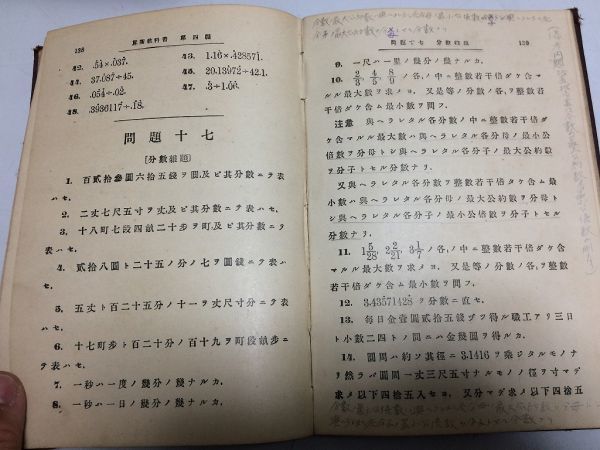 138
算術敎科書　第四編
42. .5̇4̇ × .0̇37̇.
43. 1.1̇6̇ × .4̇28571̇.
44. 37.0̇87̇ ÷ 45.
45. 20.13̇072̇ ÷ 42.1.
46. .05̇4̇ ÷ .0̇2̇.
47. .3̇ ÷ 1.06̇.
48. .3̇936117̇ ÷ .1̇8̇.
問題十七
〔分數雜題〕
1. 百貳拾參圓六拾五錢ヲ圓及ビ其分數ニテ表
ハセ.
2. 二丈七尺五寸ヲ丈及ビ其分數ニテ表ハセ.
3. 十八町七段四畝二十步ヲ町及ビ其分數ニテ
表ハセ.
4. 貳拾八圓ト二十五ノ分ノ七ヲ圓錢ニテ表ハ
セ.
5. 五丈ト百二十五分ノ十一ヲ丈尺寸分ニテ表
ハセ.
6. 十七町步ト百二十分ノ百十九ヲ町段畝步ニ
テ表ハセ.
7. 一秒ハ一度ノ幾分ノ幾ナルカ.
8. 一秒ハ一日ノ幾分ノ幾ナルカ.
問題十七　分數雜題
139
9. 一尺ハ一里ノ幾分ノ幾ナルカ.
10. 2/3, 4/5, 8/9 ノ各〻ノ中ニ整數若干倍ダケ含マ
ルル最大數ヲ求メヨ. 又是等ノ分數ノ各〻ヲ整數若
干倍ダケ含ム最小數ヲ問フ.
注意　與ヘラレタル各分數ノ中ニ整數若干倍ダ
ケ含マルル最大數ハ與ヘラレタル各分母ノ最小公
倍數ヲ分母トシ與ヘラレタル各分子ノ最大公約數
ヲ分子トセル分數ナリ.
又與ヘラレタル各分數ヲ整數若干倍ダケ含ム最
小數ハ與ヘラレタル各分母ノ最大公約數ヲ分母ト
シ與ヘラレタル各分子ノ最小公倍數ヲ分子トセル
分數ナリ.
11. 1 5/28, 2 2/21, 3 1/7 ノ各〻ノ中ニ整數若干倍ダケ含
マルル最大數ヲ求メヨ. 又是等ノ分數ノ各〻ヲ整數
若干倍ダケ含ム最小數ヲ問フ.
12. 3.43̇571428̇ ヲ分數ニ直セ.
13. 每日金壹圓貳拾五錢ヅヽヲ得ル職工アリ三日
ト小數二四トノ間ニハ金幾圓ヲ得ルカ.
14. 圓周ハ約ソ其徑ニ 3.1416 ヲ乘ジタルモノナ
リ然ラバ圓周一丈三尺五寸ナルモノノ徑ヲ寸マデ
求メ以下四捨五入セヨ. 又分マデ求メ以下四捨五